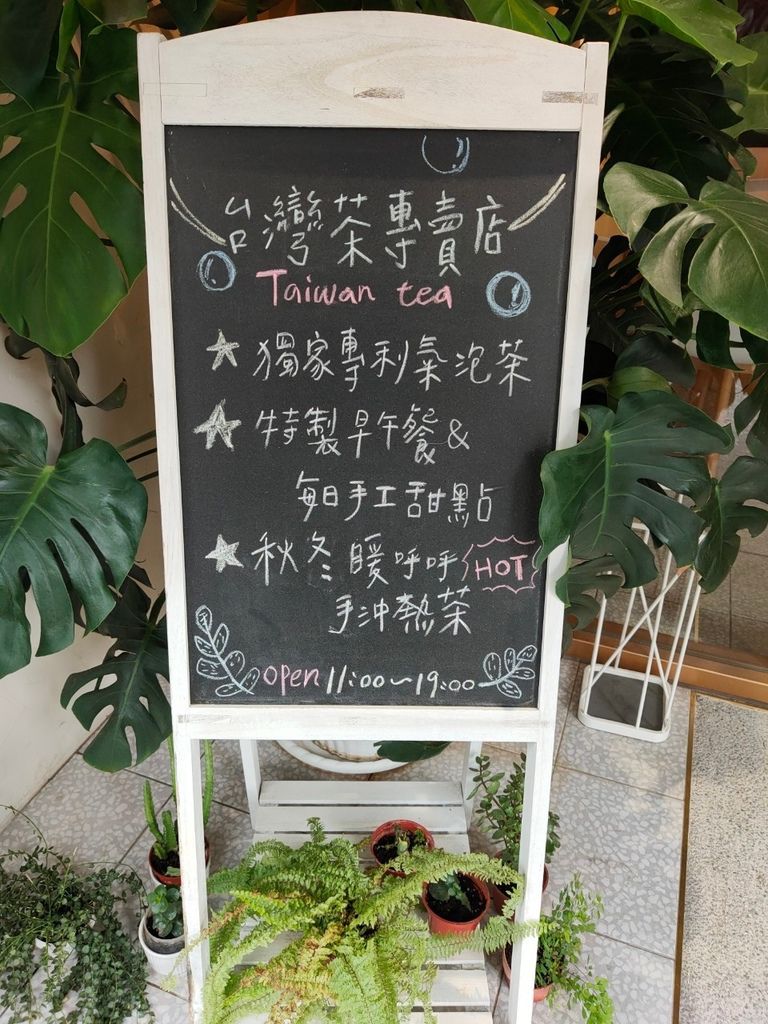 台灣茶專賣店
Taiwan tea
★ 獨家專利氣泡茶
★ 特製早午餐 &
每日手工甜點
★ 秋冬暖呼呼 HOT
手沖熱茶
open 11:00~19:00